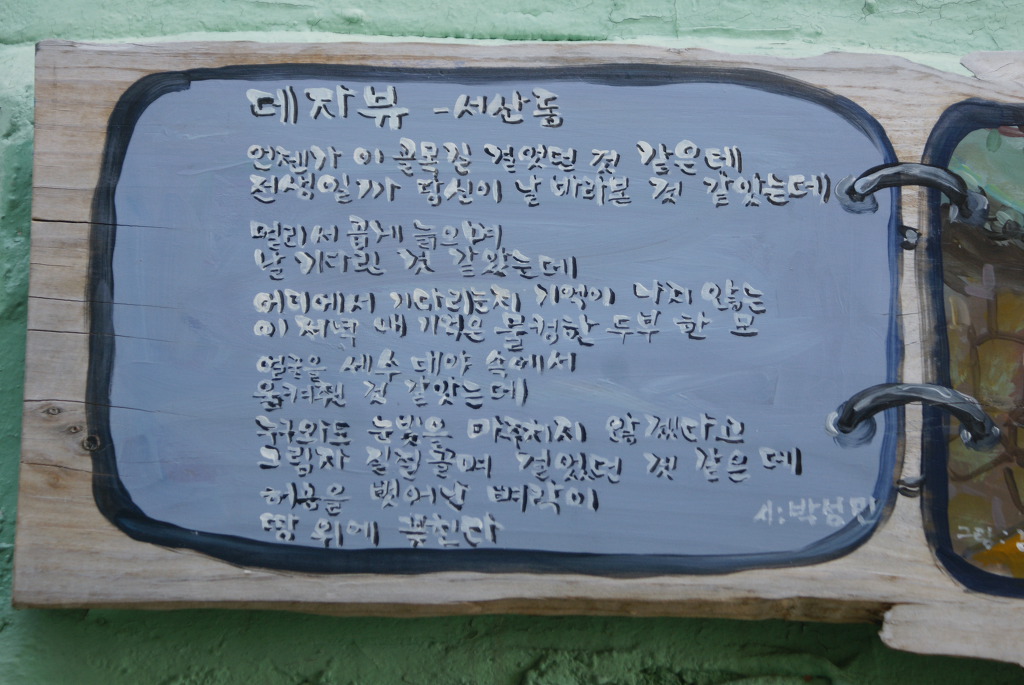 데자뷰 -서산동
언젠가 이 골목길 걸었던 것 같은데
전생일까 당신이 날 바라본 것 같았는데
멀리서 곱게 늙으며
날 기다린 것 같았는데
어디에서 기다리는지 기억이 나지 않는
이 저녁 내 기억은 물컹한 두부 한 모
얼굴을 세수 대야 속에서
움켜쥔 것 같았는데
누구와도 눈빛을 마주치지 않겠다고
그림자 질질 끌며 걸었던 것 같은데
허물을 벗어난 벼락이
땅 위에 꽂힌다
시:박성민
그림: